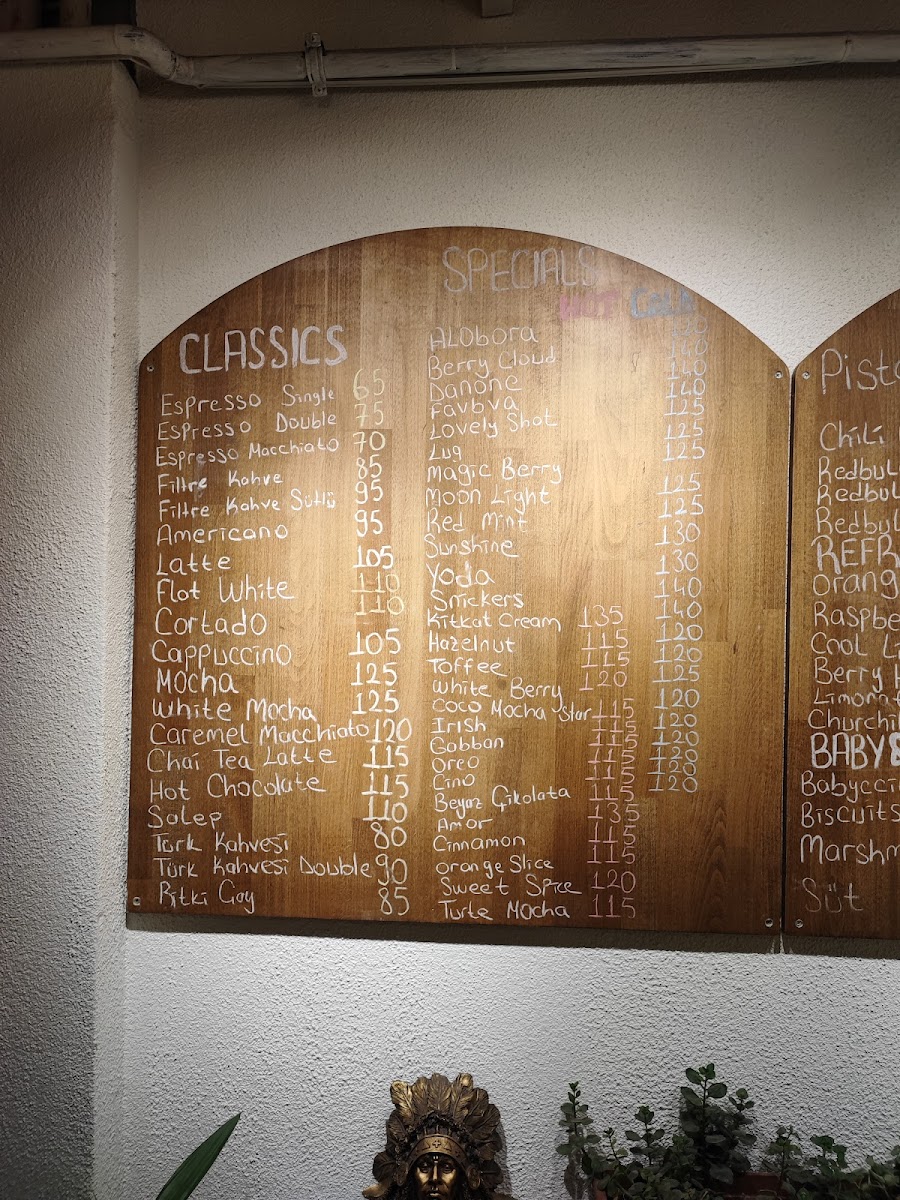 CLASSICS
Espresso Single 65
Espresso Double 75
Espresso Macchiato 70
Filtre Kahve 85
Filtre Kahve Sütlü 95
Americano 95
Latte 105
Flat White 110
Cortado 110
Cappuccino 105
Mocha 125
White Mocha 125
Caremel Macchiato 120
Chai Tea Latte 115
Hot Chocolate 115
Salep 110
Türk Kahvesi 80
Türk Kahvesi Double 90
Bitki Çay 85
SPECIALS
HOT COLD
ALObora
Berry Cloud
Danone
Favbva
Lovely Shot
Lug
Magic Berry
Moon Light
Red Mint
Sunshine
Yoda
Snickers
Kitkat Cream 135
Hazelnut 115
Toffee 115
White Berry 120
Coco Mocha Star 115
Irish
Gabban
Oreo
Cino
Beyaz Çikolata
Amor
Cinnamon
Orange Slice
Sweet Spice 120
Turte Mocha 115
140
140
125
125
125
125
125
130
130
140
140
120
120
125
120
120
120
120
Chili
Redbul
Redbul
Redbul
REFR
Orang
Raspbe
Cool Li
Berry
Limonat
Churchil
BABY
Babycci
Biscuits
Marshm
Süt